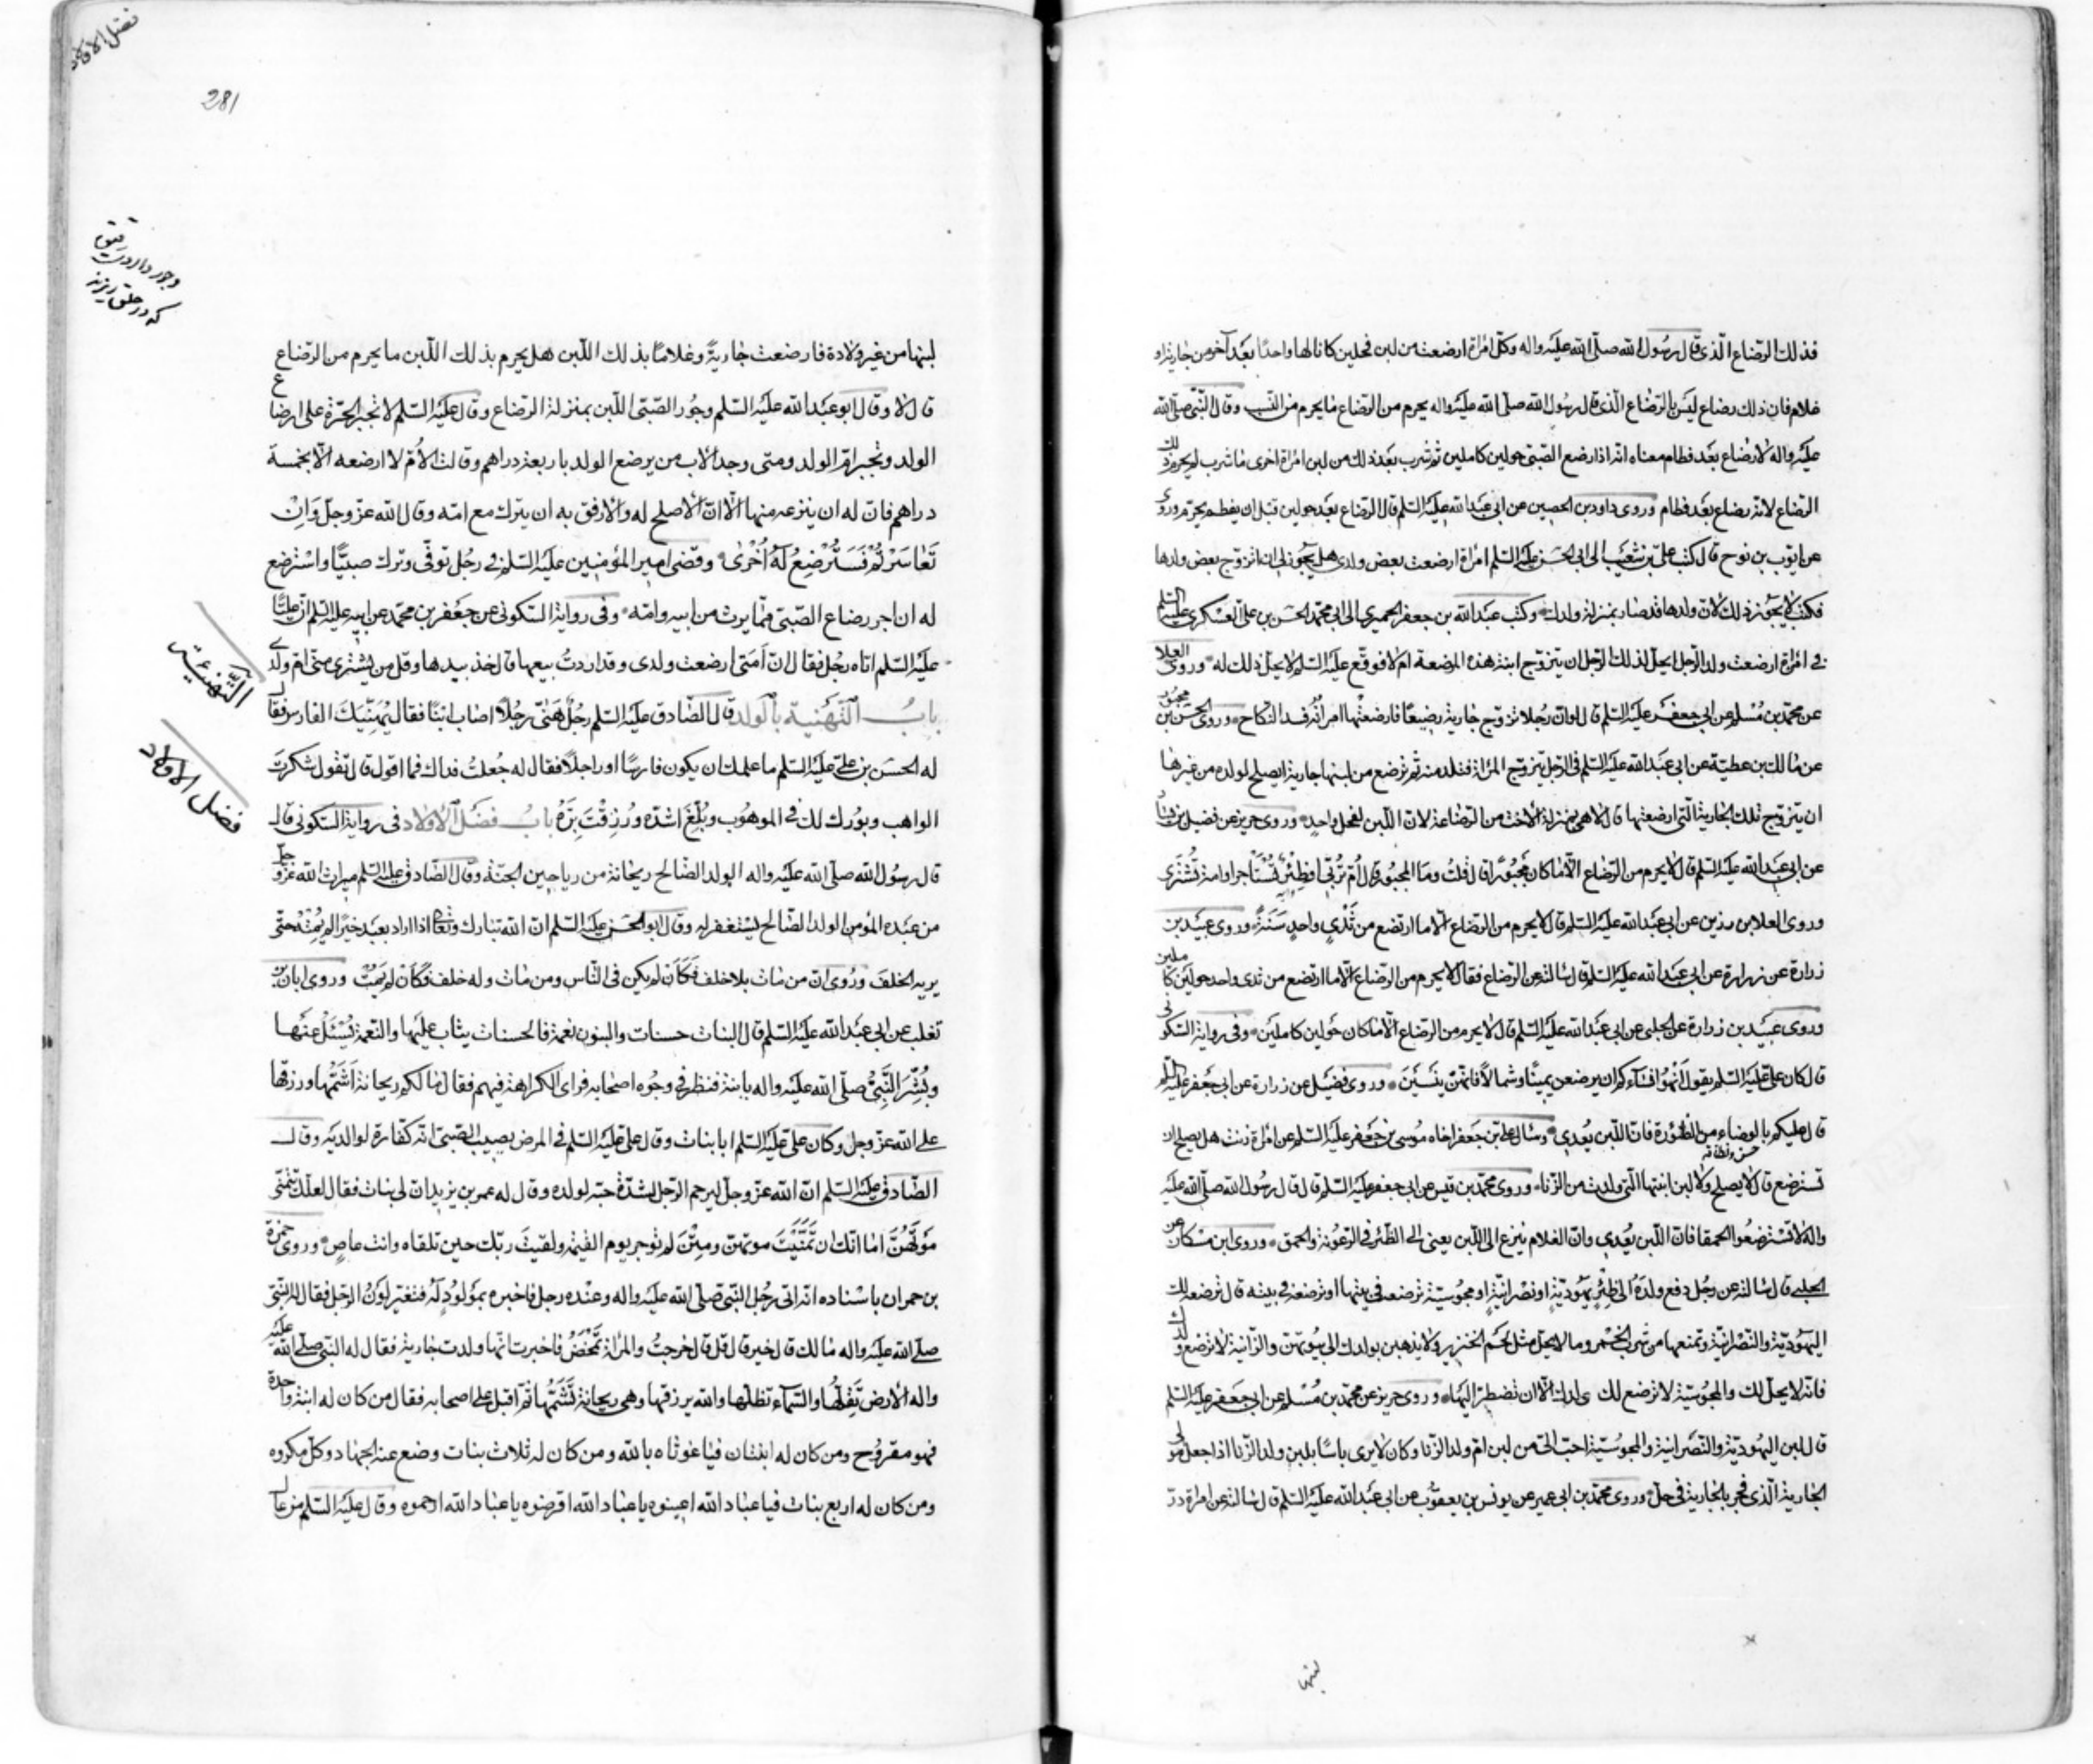 فذلك الرضاع الّذى قال رسُول الله صلّى الله عليه واله وكل امرأة ارضعت من لبن فحلين كانا لها واحدًا بعد آخر من جارية او
غلام فان ذلك رضاع ليس بالرضاع الّذى قال رسُول الله صلّى الله عليه واله يحرم من الرضاع ما يحرم من النسب وقال النّبي صلّى الله
عليه واله لا رضاع بعد فطام معناه انه اذا رضع الصّبى حولين كاملين ثم شرب بعد ذلك من لبن امراة اخرى ما شرب لم يحرم ذلك
الرضاع لانه رضاع بعد فطام وروى داود بن الحصين عن ابى عبد الله عليه السّلم قال الرضاع بعد حولين قبل ان يفطم يحرّم وروى
عن ايوب بن نوح قال كتب على بن شعيب الى ابى الحسن عليه السّلم امراة ارضعت بعض ولدى هل يجوز لى ان اتزوج بعض ولدها
فكتب لا يجوز ذلك لان ولدها قد صار بمنزلة ولدك وكتب عبد الله بن جعفر الحميرى الى ابى محمّد الحسن بن على العسكرى عليه السلم
فى امراة ارضعت ولد الرّجل ايحل لذلك الرّجل ان يتزوج ابنة هذه المرضعة ام لا فوقّع عليه السّلم لا يحل ذلك له وروى العلا
عن محمّد بن مُسلم عن ابى جعفر عليه السّلم قال لو ان رجلا تزوج جارية رضيعًا فارضعتها امراته فسد النكاح وروى الحسن بن محبوب
عن مالك بن عطية عن ابى عبد الله عليه السّلم فى الرّجل يتزوج المراة فتلد منه ثم ترضع من لبنها جارية ايصلح لولده من غيرها
ان يتزوج تلك الجارية الّتى ارضعتها قال لا هى بمنزلة الاخت من الرضاعة لان اللّبن لفحل واحد وروى حريز عن فضيل بن يسار
عن ابى عبد الله عليه السّلم قال لا يحرم من الرضاع الّا ما كان مجبورًا قال قلت وما المجبور قال اُمّ تربّى او ظئر تستأجر او امة تشترى
وروى العلا بن رزين عن ابى عبد الله عليه السّلم قال لا يحرم من الرضاع الّا ما ارتضع من ثدى واحد سنة وروى عبيد بن
زرارة عن زرارة عن ابى عبد الله عليه السّلم قال سالته عن الرضاع فقال لا يحرم من الرضاع الّا ما ارتضع من ثدى واحد حولين كاملين
وروى عبيد بن زرارة عن الحلبى عن ابى عبد الله عليه السّلم قال لا يحرم من الرضاع الّا ما كان حولين كاملين وفى رواية السكونى
قال كان على عليه السّلم يقول انهوا نساءكم ان يرضعن يمينًا وشمالًا فانهنّ ينسين وروى فضيل عن زرارة عن ابى جعفر عليه السلم
قال عليكم بالوضاء من الظئورة فان اللّبن يُعدى وسال على بن جعفر اخاه موسى بن جعفر عليه السّلم عن امراة زنت هل يصلح ان
تسترضع قال لا يصلح ولا لبن ابنتها الّتى ولدت من الزنا وروى محمّد بن قيس عن ابى جعفر عليه السّلم قال قال رسُول الله صلّى الله عليه
واله لا تسترضعوا الحمقا فان اللّبن يُعدى وان الغلام ينزع الى اللّبن يعنى الى الظئر فى الرعونة والحمق وروى ابن مسكان عن
الحلبى قال سالته عن رجل دفع ولده الى ظئر يهودية او نصرانية او مجوسية ترضعه فى بيتها او ترضعه فى بيته قال ترضعه لك
اليهودية والنصرانية وتمنعها من شرب الخمر وما لا يحل مثل لحم الخنزير ولا يذهبن بولدك الى بيوتهن والزانية لا ترضع ولدك
فانه لا يحل لك والمجوسية لا ترضع لك ولدك الّا ان تضطر اليها وروى حريز عن محمّد بن مُسلم عن ابى جعفر عليه السلم
قال لبن اليهودية والنصرانية والمجوسية احب الى من لبن ام ولد الزنا وكان لا يرى باسًا بلبن ولد الزنا اذا جعل مولى
الجارية الّذى فجر بالجارية فى حل وروى محمّد بن ابى عمير عن يونس بن يعقوب عن ابى عبد الله عليه السّلم قال سالته عن امراة درّ
لبنها
فضل الاولاد
281
وجور داروئيست رقيق
كه در حلق ريزند
لبنها من غير ولادة فارضعت جارية وغلامًا بذلك اللّبن هل يحرم بذلك اللّبن ما يحرم من الرضاع
قال لا وقال ابو عبد الله عليه السّلم وجُور الصّبى اللّبن بمنزلة الرضاع وقال عليه السّلم لا تجبر الحرّة على ارضاع
الولد وتجبر ام الولد ومتى وجد الاب من يرضع الولد باربعة دراهم وقالت الام لا ارضعه الّا بخمسة
دراهم فان له ان ينزعه منها الّا ان الاصلح له والارفق به ان يترك مع امه وقال الله عزّ وجلّ وَاِنْ
تَعَاسَرْتُمْ فَسَتُرْضِعُ لَهُ اُخْرٰى وقضى امير المؤمنين عليه السّلم فى رجُل توفّى وترك صبيًّا واسترضع
له ان اجر رضاع الصّبى مما يرث من ابيه وامه وفى رواية السكونى عن جعفر بن محمّد عن ابيه عليه السلم ان عليًّا
عليه السّلم اتاه رجُل فقال ان اَمَتى ارضعت ولدى وقد اردتُ بيعها قال خذ بيدها وقل من يشترى منى ام ولدى
بابُ التهنية بالولد قال الصّادق عليه السّلم رجُل هنّى رجُلًا اصاب ابنًا فقال يهنيك الفارس فقال
له الحسن بن على عليه السّلم ما علمك ان يكون فارسًا او راجلًا فقال له جُعلتُ فداك فما اقول قال تقول شكرت
الواهب وبُورك لك فى الموهُوب وبُلّغ اشدّه ورُزقت برّه بابُ فضل الاولاد فى رواية السكونى قال
قال رسُول الله صلّى الله عليه واله الولد الصّالح ريحانة من رياحين الجنّة وقال الصّادق عليه السلم ميراث الله عزّ وجلّ
من عبده المؤمن الولد الصّالح يستغفر له وقال ابو الحسن عليه السّلم ان الله تبارك وتعالى اذا اراد بعبد خيرًا لم يُمته حتّى
يريه الخلف ورُوى ان من مات بلا خلف فكان لم يكن فى النّاس ومن مات وله خلف فكان لم يمت وروى ابان بن
تغلب عن ابى عبد الله عليه السّلم قال البنات حسنات والبنون نعمة فالحسنات يثاب عليها والنعمة يُسئل عنها
وبُشّر النّبى صلّى الله عليه واله بابنة فنظر فى وجُوه اصحابه فراى الكراهة فيهم فقال ما لكم ريحانة اشمّها ورزقها
على الله عزّ وجلّ وكان على عليه السّلم ابا بنات وقال على عليه السّلم فى المرض يصيب الصّبى انه كفارة لوالديه وقال
الصّادق عليه السّلم ان الله عزّ وجلّ ليرحم الرّجل لشدّة حبّه لولده وقال له عمر بن يزيد ان لى بنات فقال لعلّك تتمنّى
موتهنّ اما انّك ان تمنّيت موتهنّ ومتن لم توجر يوم القيمة ولقيت ربّك حين تلقاه وانت عاص وروى حمزة
بن حمران باسناده انه اتى رجُل النّبى صلّى الله عليه واله وعنده رجل فاخبره بمولود له فتغيّر لون الرّجل فقال له النّبى
صلّى الله عليه واله مالك قال خير قال قل قال خرجتُ والمراة تمخض فاخبرت انها ولدت جارية فقال له النّبى صلّى الله عليه
واله الارض تقلّها والسّماء تظلّها والله يرزقها وهى ريحانة تشمّها ثم اقبل على اصحابه فقال من كان له ابنة واحدة
فهو مقروح ومن كان له ابنتان فيا غوثاه بالله ومن كان له ثلاث بنات وضع عنه الجهاد وكل مكروه
ومن كان له اربع بنات فيا عباد الله اعينوه يا عباد الله اقرضوه يا عباد الله ارحموه وقال عليه السّلم من عال
التهنئة
فضل الاولاد